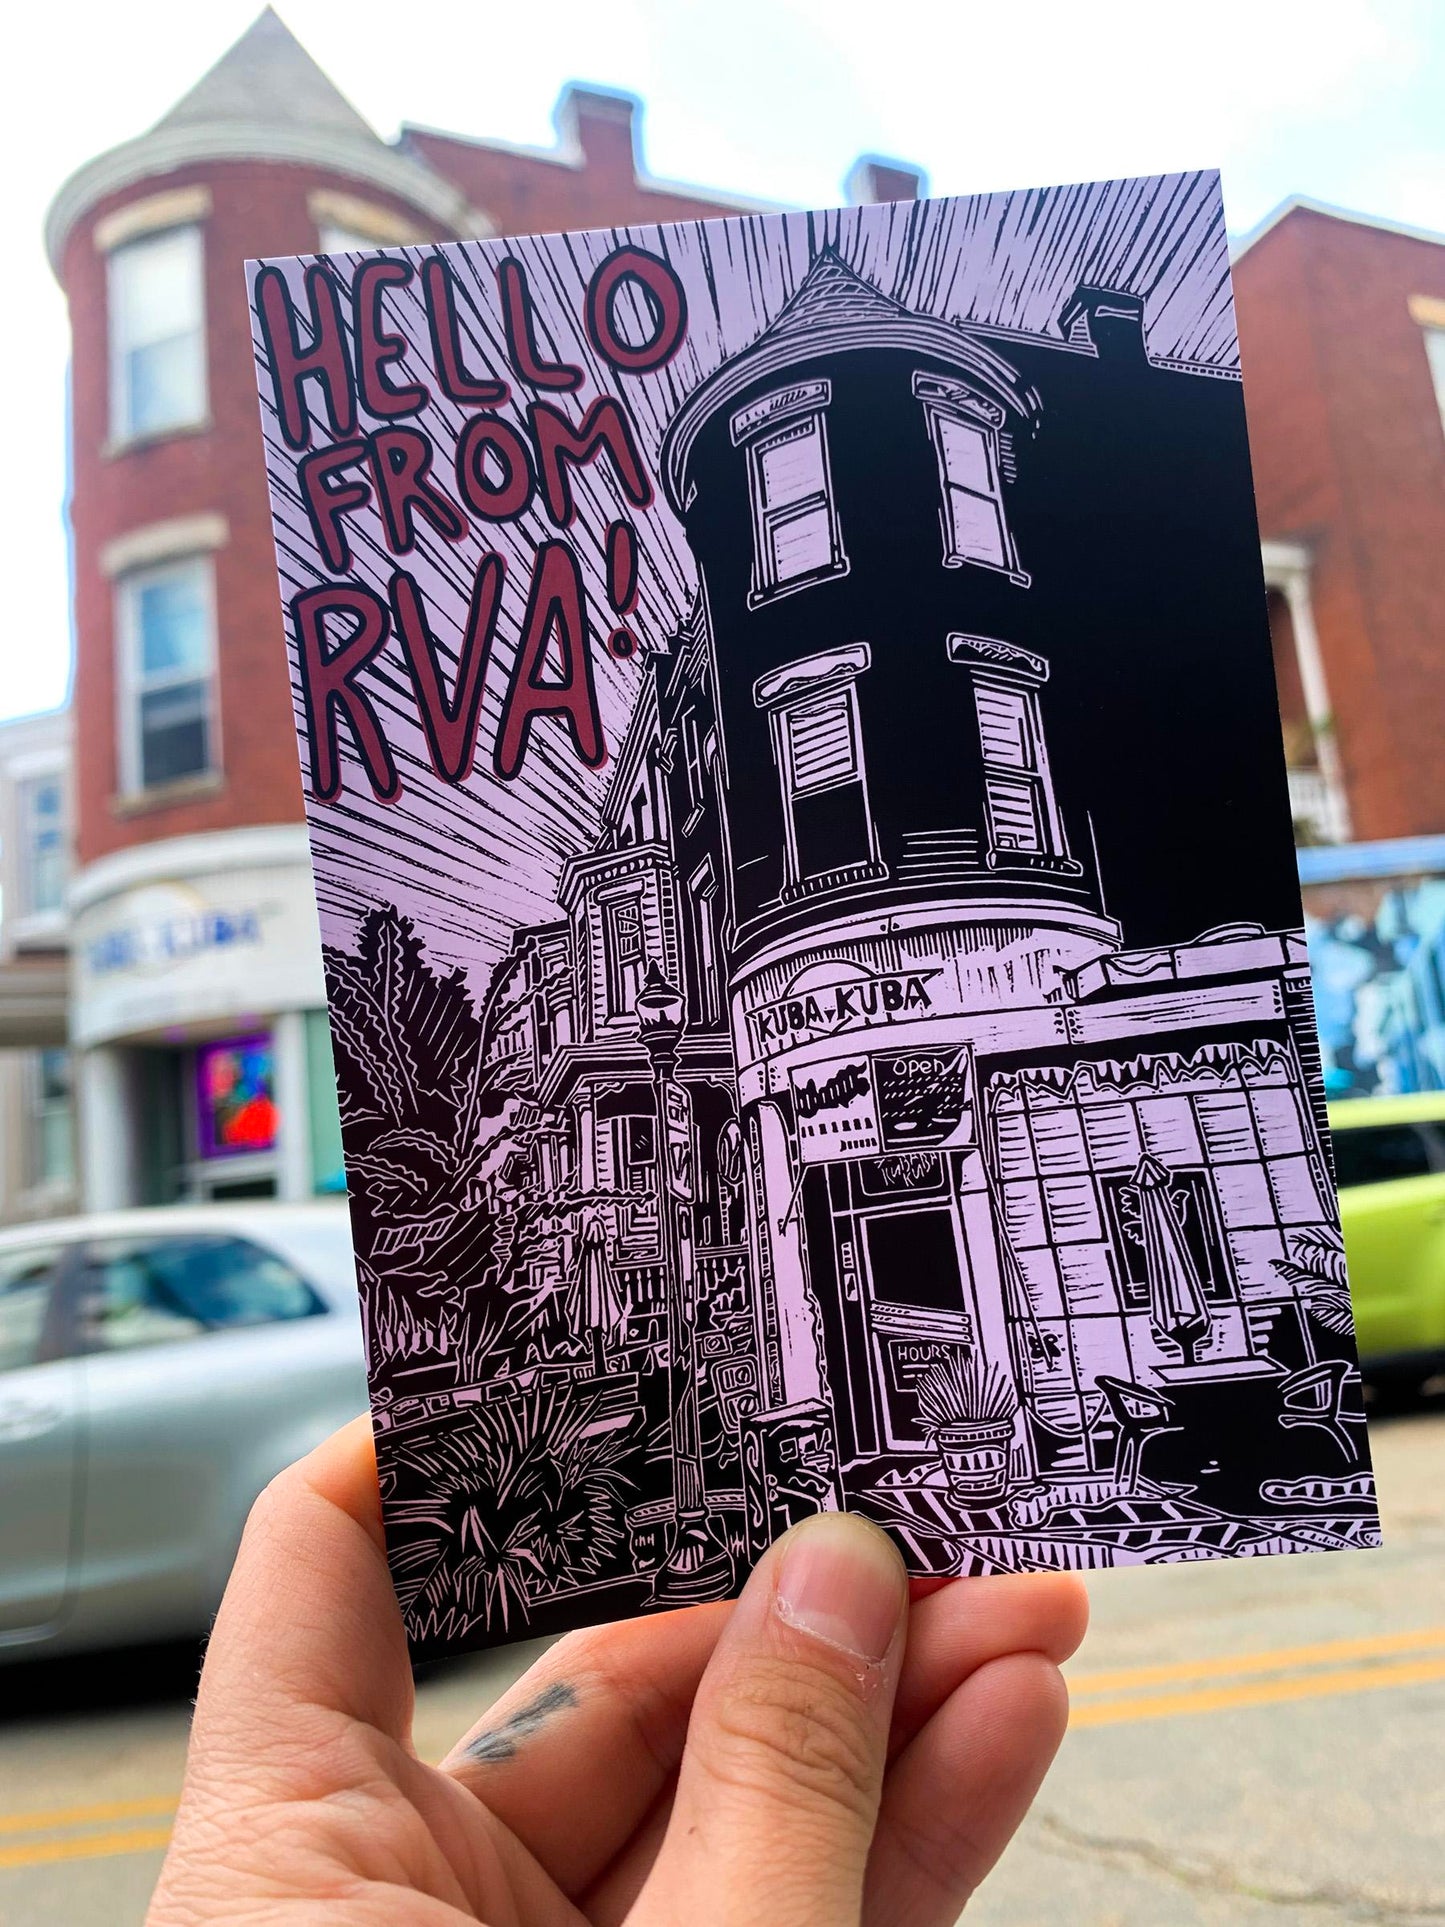 HELLO
FROM
RVA!
KUBA KUBA
Open
HOURS
KUBA KUBA